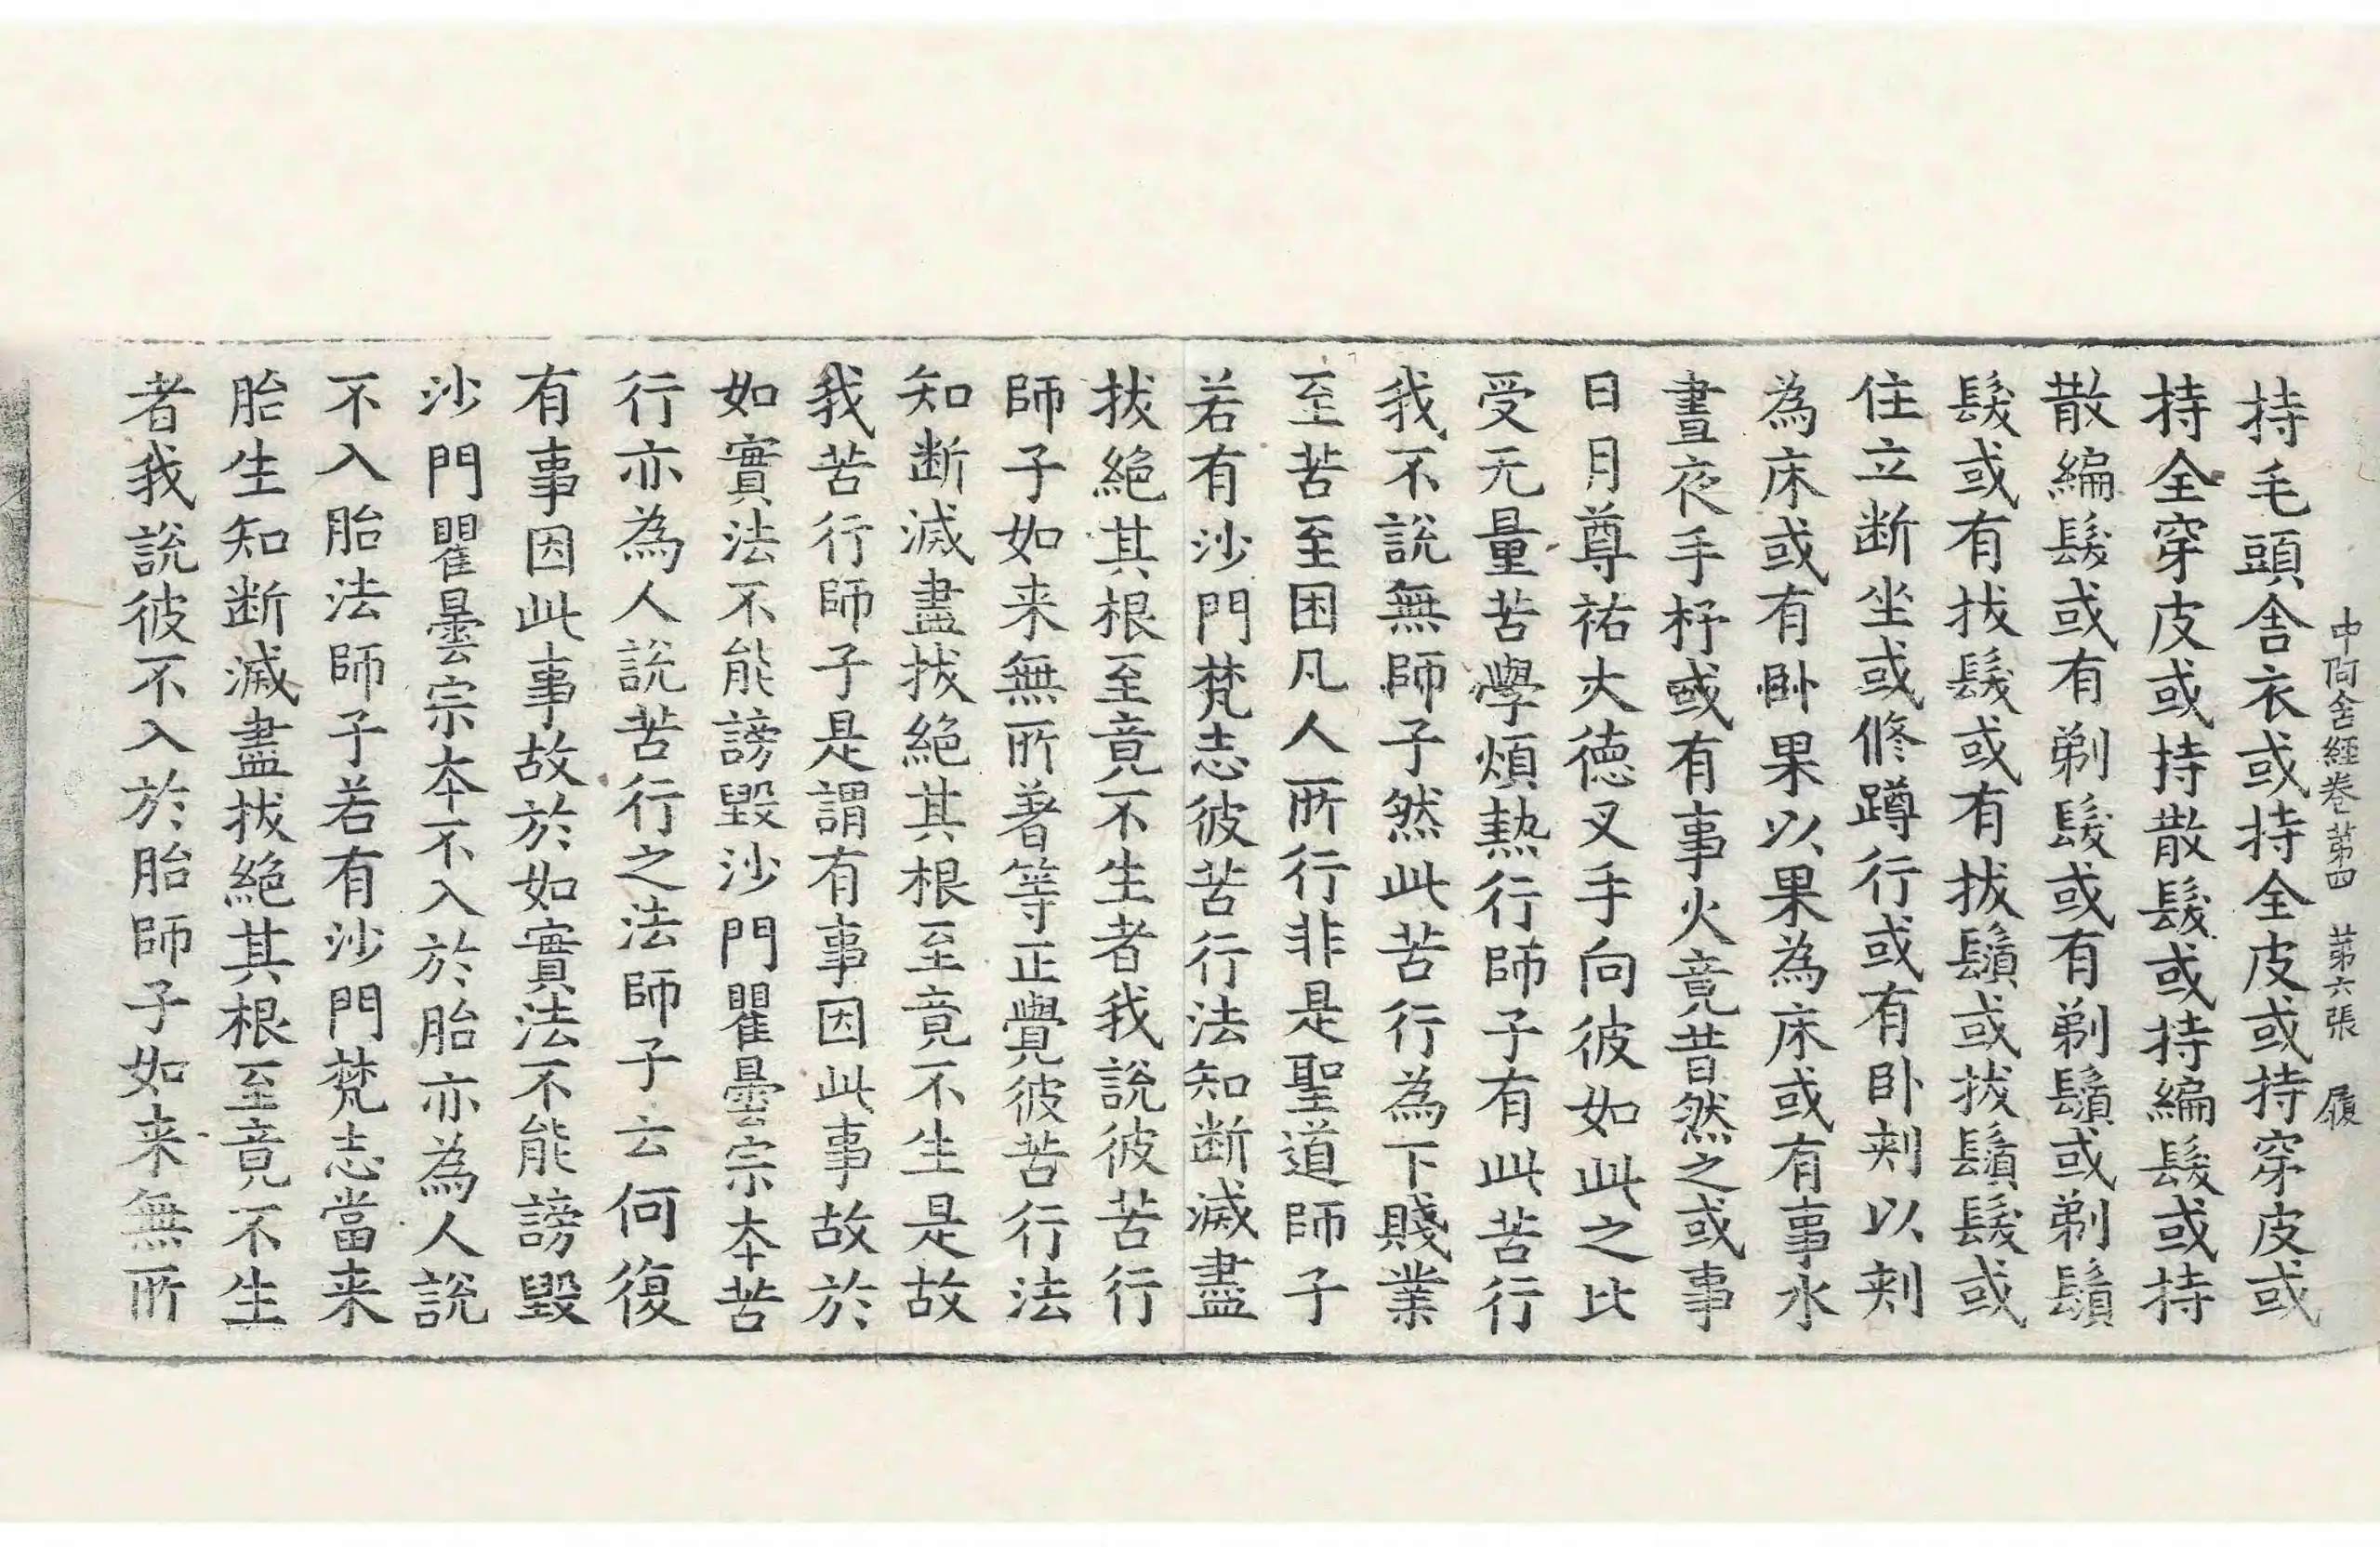 中阿含経卷第四　第六張　履
持毛頭舎衣或持全皮或持穿皮或
持全穿皮或持散髮或持編髮或持
散編髮或有剃髮或有剃鬚或剃鬚
髮或有拔髮或有拔鬚或拔鬚髮或
住立断坐或修蹲行或有卧刾以刾
為床或有卧果以果為床或有事水
晝夜手杼或有事火竟昔然之或事
日月尊祐大德叉手向彼如此之比
受无量苦學煩熱行師子有此苦行
我不說無師子然此苦行為下賤業
至苦至困凡人所行非是聖道師子
若有沙門梵志彼苦行法知断滅盡
拔絕其根至竟不生者我說彼苦行
師子如来無所著等正覺彼苦行法
知断滅盡拔絕其根至竟不生是故
我苦行師子是謂有事因此事故於
如實法不能謗毀沙門瞿曇宗本苦
行亦為人說苦行之法師子云何復
有事因此事故於如實法不能謗毀
沙門瞿曇宗本不入於胎亦為人說
不入胎法師子若有沙門梵志當来
胎生知断滅盡拔絕其根至竟不生
者我說彼不入於胎師子如来無所